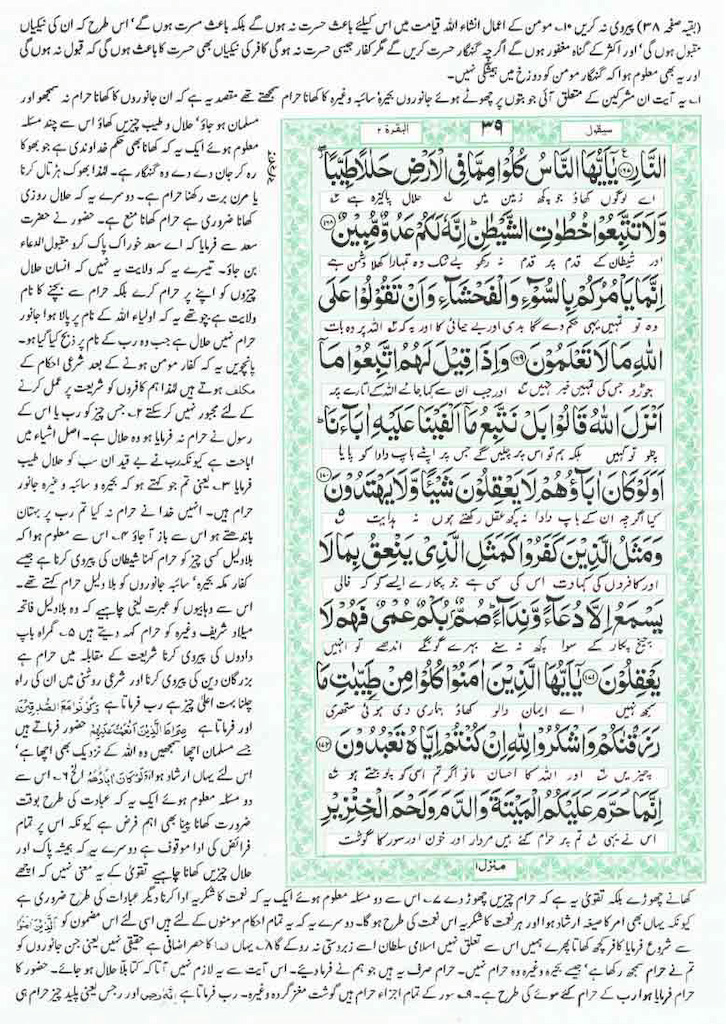 (بقیہ صفحہ ۳۸) پیروی نہ کریں ۱۰۔ مومن کے اعمال انشاء اللہ قیامت میں اس کیلئے باعث حسرت نہ ہوں گے بلکہ باعث مسرت ہوں گے' اس طرح کہ ان کی نیکیاں
مقبول ہوں گی' اور اکثر کے گناہ مغفور ہوں گے اگرچہ گنہگار حسرت کریں گے مگر کفار جیسی حسرت نہ ہو گی کافر کی نیکیاں بھی حسرت کا باعث ہوں گی کہ قبول نہ ہوں گی
اور یہ بھی معلوم ہوا کہ گنہگار مومن کو دوزخ میں ہمیشگی نہیں۔
۱۔ یہ آیت ان مشرکین کے متعلق آئی جو بتوں پر چھوٹے ہوئے جانوروں بحیرہ سائبہ وغیرہ کا کھانا حرام سمجھتے تھے مقصد یہ ہے کہ ان جانوروں کا کھانا حرام نہ سمجھو اور
سیقول ۲
۳۹
البقرۃ ۲
النَّارِ ﴿۱۶۷﴾ یٰۤاَیُّهَا النَّاسُ كُلُوْا مِمَّا فِی الْاَرْضِ حَلٰلًا طَیِّبًا
اے لوگوں کھاؤ جو کچھ زمین میں ہے حلال پاکیزہ ہے
وَّلَا تَتَّبِعُوْا خُطُوٰتِ الشَّیْطٰنِ اِنَّهٗ لَكُمْ عَدُوٌّ مُّبِیْنٌ ﴿۱۶۸﴾
اور شیطان کے قدم پر قدم نہ رکھو بے شک وہ تمہارا کھلا دشمن ہے
اِنَّمَا یَاْمُرُكُمْ بِالسُّوْٓءِ وَالْفَحْشَآءِ وَاَنْ تَقُوْلُوْا عَلَی
وہ تو تمہیں یہی حکم دے گا بدی اور بے حیائی کا اور یہ کہ اللہ پر وہ بات
اللّٰهِ مَا لَا تَعْلَمُوْنَ ﴿۱۶۹﴾ وَاِذَا قِیْلَ لَهُمُ اتَّبِعُوْا مَاۤ
جوڑو جس کی تمہیں خبر نہیں اور جب ان سے کہا جائے اللہ کے اتارے پر
اَنْزَلَ اللّٰهُ قَالُوْا بَلْ نَتَّبِعُ مَاۤ اَلْفَیْنَا عَلَیْهِ اٰبَآءَنَا
چلو تو کہیں بلکہ ہم تو اس پر چلیں گے جس پر اپنے باپ دادا کو پایا
اَوَلَوْ كَانَ اٰبَآؤُهُمْ لَا یَعْقِلُوْنَ شَیْـًٔا وَّلَا یَهْتَدُوْنَ ﴿۱۷۰﴾
کیا اگرچہ ان کے باپ دادا نہ کچھ عقل رکھتے ہوں نہ ہدایت
وَمَثَلُ الَّذِیْنَ كَفَرُوْا كَمَثَلِ الَّذِیْ یَنْعِقُ بِمَا لَا
اور کافروں کی کہاوت اس کی سی ہے جو پکارے ایسے کو کہ خالی
یَسْمَعُ اِلَّا دُعَآءً وَّنِدَآءً صُمٌّۢ بُكْمٌ عُمْیٌ فَهُمْ لَا
چیخ پکار کے سوا کچھ نہ سنے بہرے گونگے اندھے تو انہیں
یَعْقِلُوْنَ ﴿۱۷۱﴾ یٰۤاَیُّهَا الَّذِیْنَ اٰمَنُوْا كُلُوْا مِنْ طَیِّبٰتِ مَا
سمجھ نہیں اے ایمان والو کھاؤ ہماری دی ہوئی ستھری
رَزَقْنٰكُمْ وَاشْكُرُوْا لِلّٰهِ اِنْ كُنْتُمْ اِیَّاهُ تَعْبُدُوْنَ ﴿۱۷۲﴾
چیزیں اور اللہ کا احسان مانو اگر تم اسی کو پوجتے ہو
اِنَّمَا حَرَّمَ عَلَیْكُمُ الْمَیْتَةَ وَالدَّمَ وَلَحْمَ الْخِنْزِیْرِ
اس نے یہی تم پر حرام کئے ہیں مردار اور خون اور سور کا گوشت
منزل ۱
مسلمان ہو جاؤ' حلال و طیب چیزیں کھاؤ اس سے چند مسئلہ
معلوم ہوئے ایک یہ کہ کھانا بھی حکم خداوندی ہے جو بھوکا
رہ کر جان دے دے وہ گنہگار ہے۔ لہٰذا بھوک ہڑتال کرنا
یا مرن برت رکھنا حرام ہے۔ دوسرے یہ کہ حلال روزی
کھانا ضروری ہے حرام کھانا منع ہے۔ حضور نے حضرت
سعد سے فرمایا کہ اے سعد خوراک پاک کرو مقبول الدعاء
بن جاؤ۔ تیسرے یہ کہ ولایت یہ نہیں کہ انسان حلال
چیزوں کو اپنے پر حرام کرے بلکہ حرام سے بچنے کا نام
ولایت ہے چوتھے یہ کہ اولیاء اللہ کے نام پر پالا ہوا جانور
حرام نہیں حلال ہے جب وہ رب کے نام پر ذبح کیا گیا ہو۔
پانچویں یہ کہ کفار مومن ہونے کے بعد شرعی احکام کے
مکلف ہوتے ہیں لہٰذا ہم کافروں کو شریعت پر عمل کرنے
کے لئے مجبور نہیں کر سکتے ۲۔ جس چیز کو رب یا اس کے
رسول نے حرام نہ فرمایا ہو وہ حلال ہے۔ اصل اشیاء میں
اباحت ہے کیونکہ رب نے بے قید ان سب کو حلال طیب
فرمایا ۳۔ یعنی تم جو کہتے ہو کہ بحیرہ و سائبہ وغیرہ جانور
حرام ہیں۔ انہیں خدا نے حرام نہ کیا تم رب پر بہتان
باندھتے ہو اس سے باز آ جاؤ ۴۔ اس سے معلوم ہوا کہ
بلادلیل کسی چیز کو حرام کہنا شیطان کی پیروی کرنا ہے جیسے
کفار مکہ بحیرہ' سائبہ جانوروں کو بلا دلیل حرام کہتے تھے۔
اس سے وہابیوں کو عبرت لینی چاہیے کہ وہ بلادلیل فاتحہ
میلاد شریف وغیرہ کو حرام کہہ دیتے ہیں ۵۔ گمراہ باپ
دادوں کی پیروی کرنا شریعت کے مقابلہ میں حرام ہے
بزرگان دین کی پیروی کرنا اور شرعی روشنی میں ان کی راہ
چلنا بہت اعلیٰ چیز ہے رب فرماتا ہے وَكُوْنُوْا مَعَ الصّٰدِقِیْنَ
اور فرماتا ہے صِرَاطَ الَّذِیْنَ اَنْعَمْتَ عَلَیْهِمْ حضور فرماتے ہیں
جسے مسلمان اچھا سمجھیں وہ اللہ کے نزدیک بھی اچھا ہے'
اس لئے یہاں ارشاد ہوا اَوَلَوْ كَانَ اٰبَآؤُهُمْ الخ ۶۔ اس سے
دو مسئلہ معلوم ہوئے ایک یہ کہ عبادت کی طرح بوقت
ضرورت کھانا پینا بھی اہم فرض ہے کیونکہ اس پر تمام
فرائض کی ادا موقوف ہے دوسرے یہ کہ ہمیشہ پاک اور
حلال چیزیں کھانا چاہیے تقویٰ کے یہ معنی نہیں کہ اچھے
کھانے چھوڑے بلکہ تقویٰ یہ ہے کہ حرام چیزیں چھوڑ دے ۷۔ اس سے دو مسئلہ معلوم ہوئے ایک یہ کہ نعمت کا شکریہ ادا کرنا دیگر عبادات کی طرح ضروری ہے
کیونکہ یہاں بھی امر کا صیغہ ارشاد ہوا اور ہر نعمت کا شکریہ اس نعمت کی طرح ہو گا۔ دوسرے یہ کہ یہ تمام احکام مومنوں کے لئے ہیں اسی لئے اس مضمون کو الَّذِیْنَ اٰمَنُوْا
سے شروع فرمایا کافر کچھ کھاتا پھرے ہمیں اس سے تعلق نہیں اسلامی سلطان اسے زبردستی نہ روکے گا ۸۔ یہاں اِنَّمَا کا حصر اضافی ہے حقیقی نہیں یعنی جن جانوروں کو
تم نے حرام سمجھ رکھا ہے' جیسے بحیرہ وغیرہ وہ حرام نہیں۔ حرام صرف یہ ہیں جو ہم نے فرما دیئے۔ اس آیت سے یہ لازم نہیں آتا کہ کتا بلا حلال ہو جائے۔ حضور کا
حرام فرمایا ہوا رب کے حرام کئے ہوئے کی طرح ہے۔ ۹۔ سور کے تمام اجزاء حرام ہیں گوشت مغز گردہ وغیرہ۔ رب فرماتا ہے اِنَّهٗ رِجْسٌ اور رجس یعنی پلید چیز حرام ہی